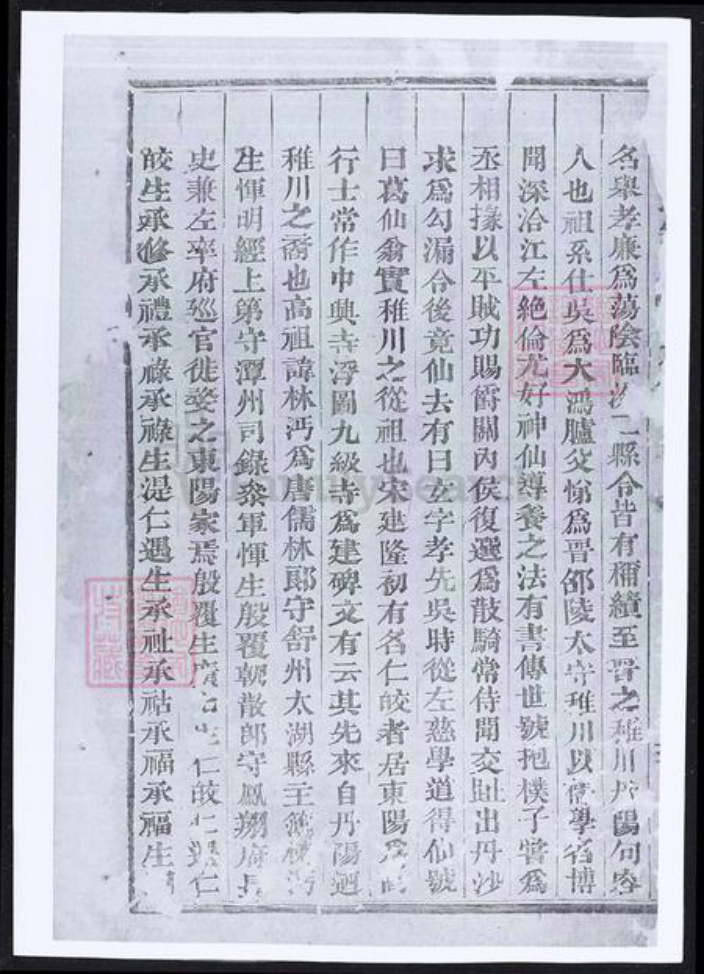 名舉孝廉爲蕩陰臨汾二縣令皆有稱績至晋之稚川丹陽句容
人也祖系仕吳爲大鴻臚父悌爲晋邵陵太守稚川以儒學名博
聞深洽江左絶倫尤好神仙導養之法有書傳世號抱樸子嘗爲
丞相掾以平賊功賜爵關內侯復選爲散騎常侍聞交趾出丹沙
求爲勾漏令後竟仙去有曰玄字孝先吳時從左慈學道得仙號
曰葛仙翁實稚川之從祖也宋建隆初有名仁皎者居東陽爲
行士常作中興寺浮圖九級寺爲建碑文有云其先來自丹陽迺
稚川之裔也高祖諱林沔爲唐儒林郞守舒州太湖縣主簿林沔
生惲明經上第守潭州司錄叅軍惲生殷覆朝散郎守鳳翔府長
史兼左率府廵官徙婺之東陽家焉殷覆生仁皎仁遇仁
皎生承修承禮承祿承祿生湜仁遇生承祉承祜承福承福生
特藏
FamilySearch